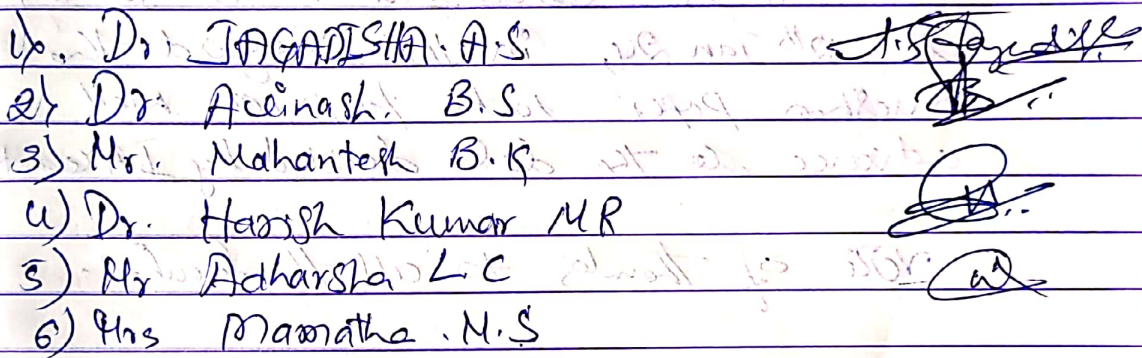 1). Dr JAGADISHA. A.S. A.S Jagadish
2) Dr. Avinash. B.S
3) Mr. Mahantesh B.K.
4) Dr. Harish Kumar MR
5) Mr Adharsha L C
6) Mrs Mamatha . M.S